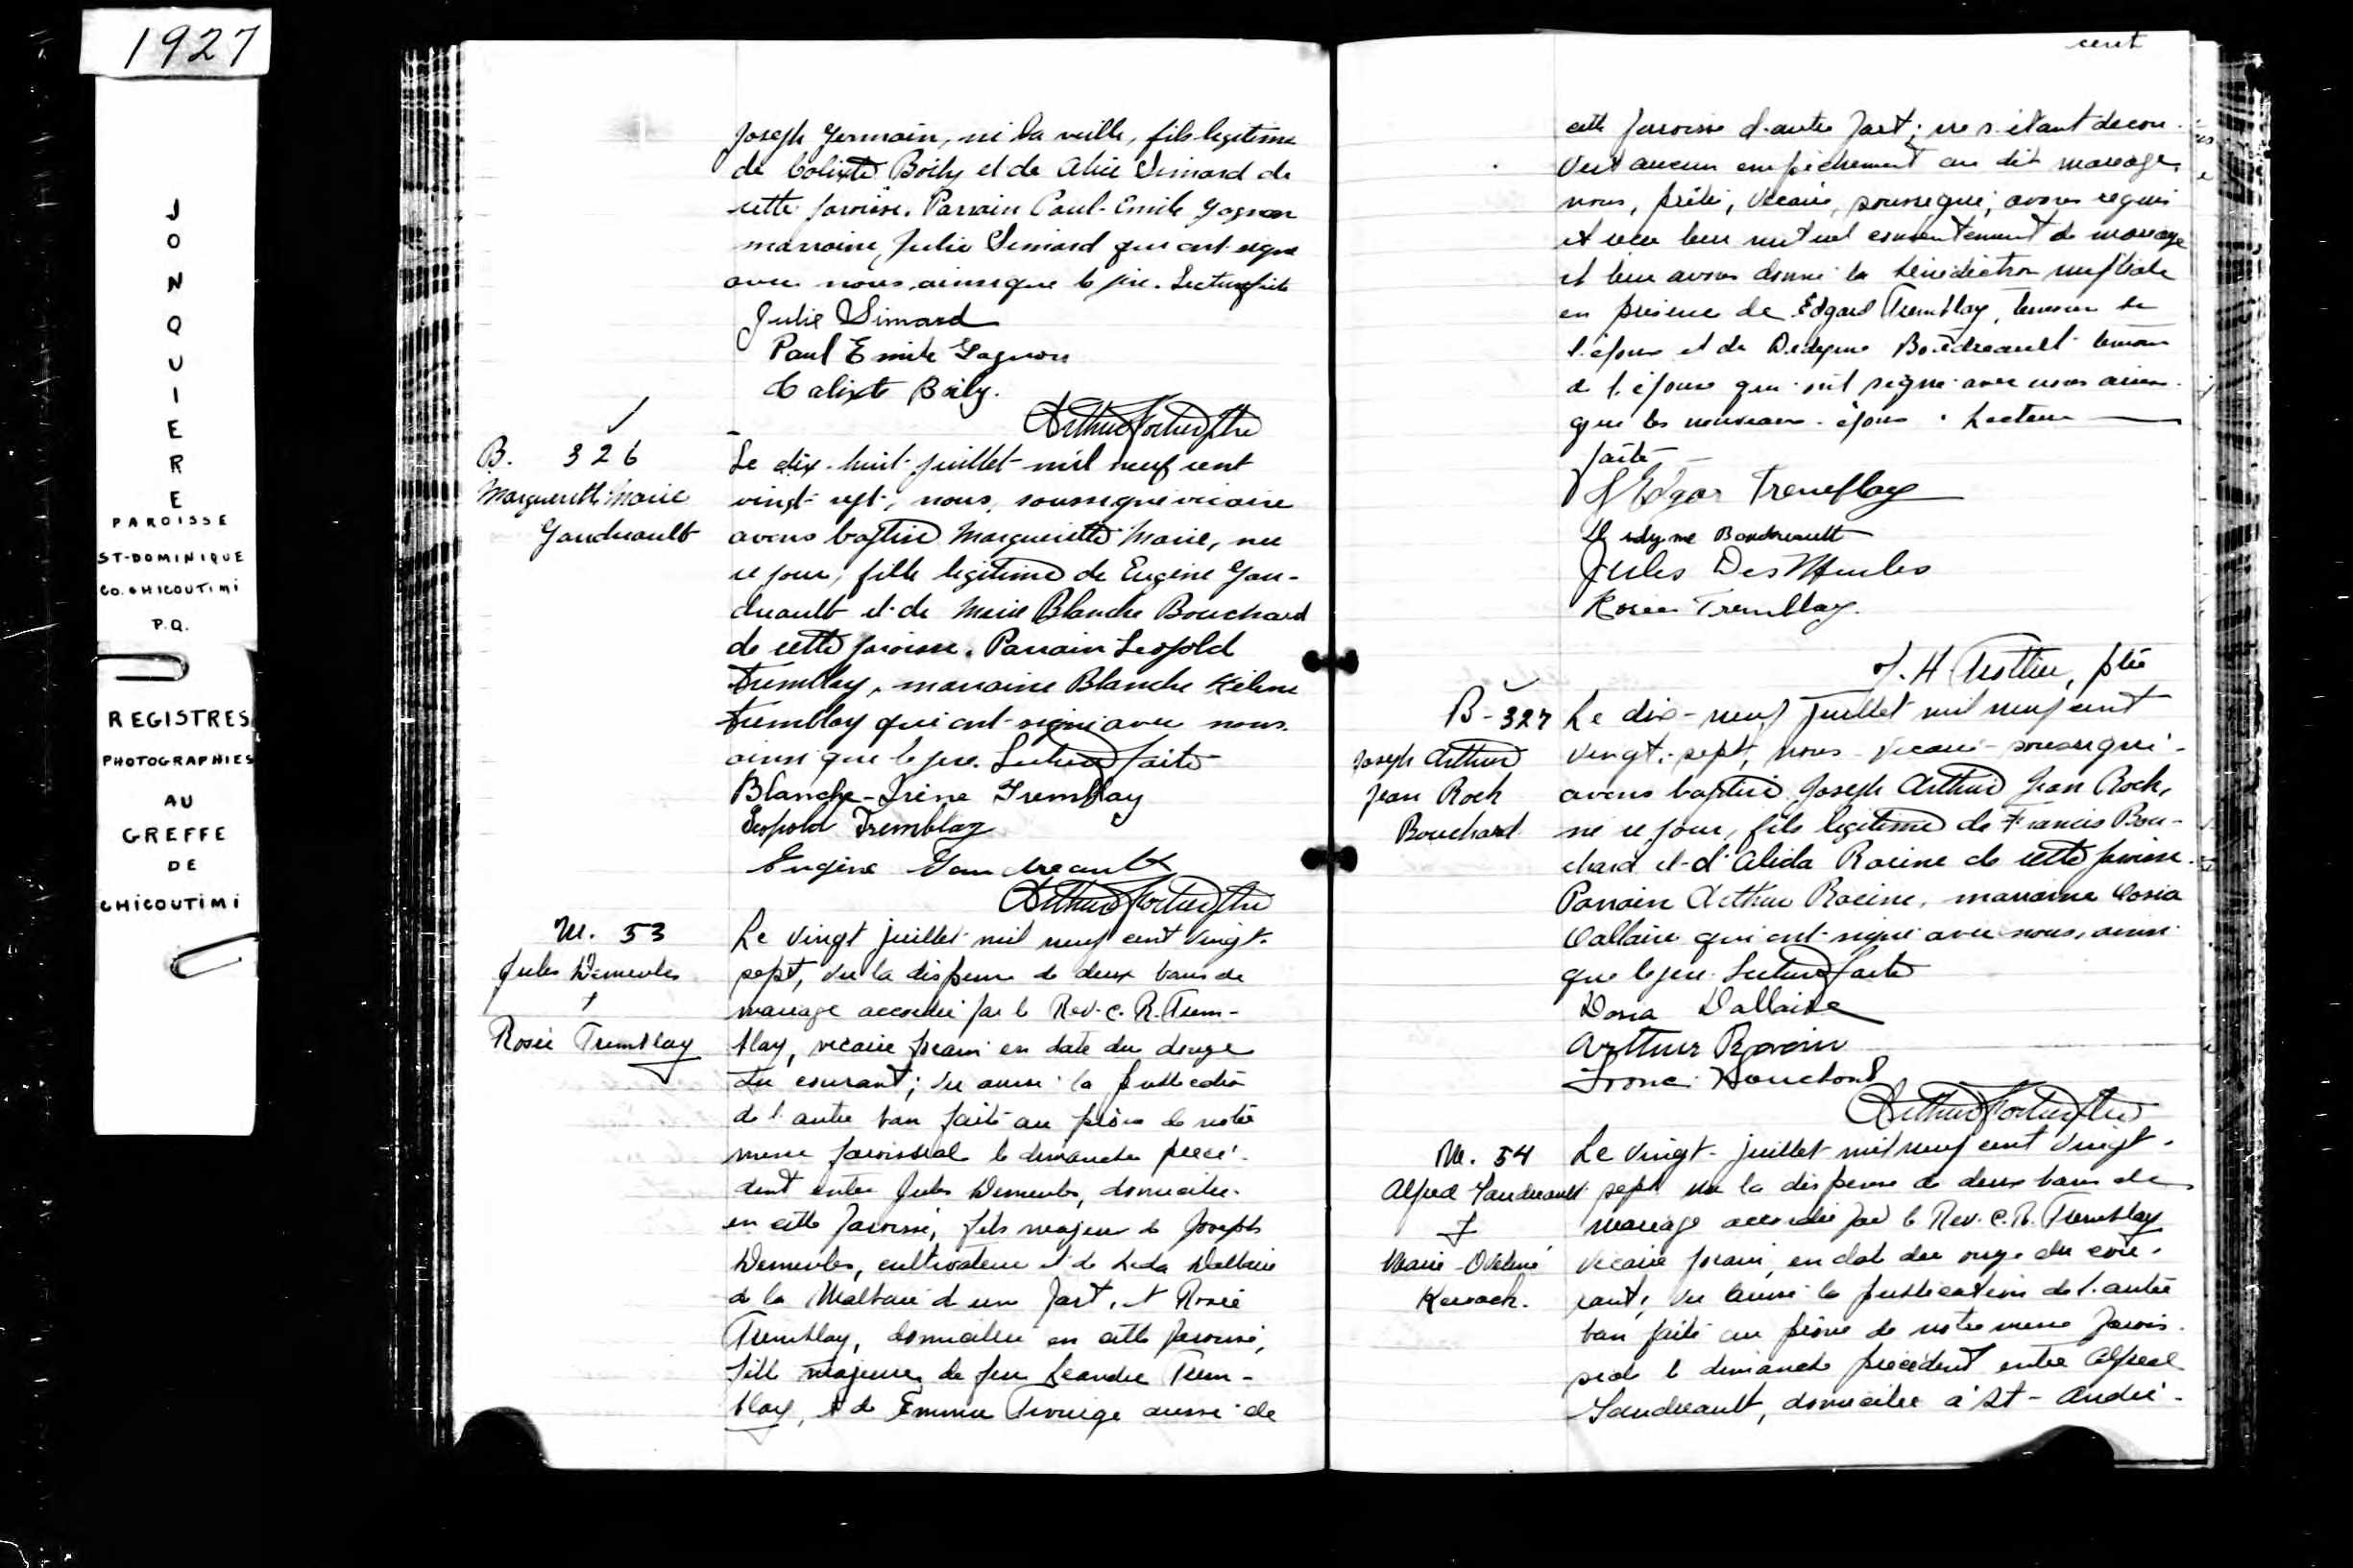 1927
JONQUIERE
PAROISSE
ST-DOMINIQUE
CO. CHICOUTIMI
P.Q.
REGISTRES
PHOTOGRAPHIES
AU
GREFFE
DE
CHICOUTIMI
Joseph Germain, né la veille, fils legitime
de Calixte Boily et de Alice Simard de
cette paroisse. Parrain Paul-Emile Gagnon
marraine, Julie Simard qui ont signé
avec nous ainsi que le père. Lecture faite
Julie Simard
Paul Emile Gagnon
Calixte Boily.
Arthur Fortier ptre
B. 326
Marguerite Marie
Gaudreault
Le dix-huit juillet mil neuf cent
vingt-sept, nous, soussigné vicaire
avons baptisé Marguerite Marie, née
ce jour, fille legitime de Eugène Gau-
dreault et de Marie Blanche Bouchard
de cette paroisse. Parrain Leopold
Tremblay, marraine Blanche Hélène
Tremblay qui ont signé avec nous
ainsi que le père. Lecture faite
Blanche-Irène Tremblay
Leopold Tremblay
Eugène Gaudreault
Arthur Fortier ptre
M. 53
Jules Demeules
+
Rosée Tremblay
Le vingt juillet mil neuf cent vingt-
sept, vu la dispense de deux bans de
mariage accordée par le Rev. C. R. Trem-
blay, vicaire forain en date du douze
du courant; vu aussi la publication
de l'autre ban faite au prône de notre
messe paroissiale le dimanche précé-
dent entre Jules Demeules, domicilié
en cette paroisse, fils majeur de Joseph
Demeules, cultivateur et de Leda Dallaire
de la Malbaie d'une part, et Rosée
Tremblay, domiciliée en cette paroisse,
fille majeure de feu Leandre Trem-
blay, et de Emma aussi de
cent
cette paroisse d'autre part; ne s'étant décou-
vert aucun empêchement au dit mariage
nous, prêtre, vicaire, soussigné, avons requis
et reçu leur mutuel consentement de mariage
et leur avons donné la bénédiction nuptiale
en présence de Edgard Tremblay, témoin de
l'époux et de Didyme Boudreault témoin
de l'épouse qui ont signé avec nous ainsi
que les nouveaux époux. Lecture
faite
Edgar Tremblay
Didyme Boudreault
Jules DesMeules
Rosée Tremblay.
J. H. Trottier, ptre
B-327
Joseph Arthur
Jean Roch
Bouchard
Le dix-neuf juillet mil neuf cent
vingt-sept, nous vicaire soussigné
avons baptisé Joseph Arthur Jean Roch,
né ce jour, fils legitime de Francis Bou-
chard et d'Alida Racine de cette paroisse.
Parrain Arthur Racine, marraine Dosia
Dallaire qui ont signé avec nous, ainsi
que le père. Lecture faite
Dosia Dallaire
Arthur Racine
Bouchard
Arthur Fortier ptre
M. 54
Alfred Gaudreault
+
Marie
Kerouack.
Le vingt-juillet mil neuf cent vingt-
sept vu la dispense de deux bans de
mariage accordée par le Rev. C. R. Tremblay
vicaire forain, en date du onze du cou-
rant; vu aussi la publication de l'autre
ban faite au prône de notre messe parois-
siale le dimanche précédent entre Alfred
Gaudreault, domicilié à St-André-